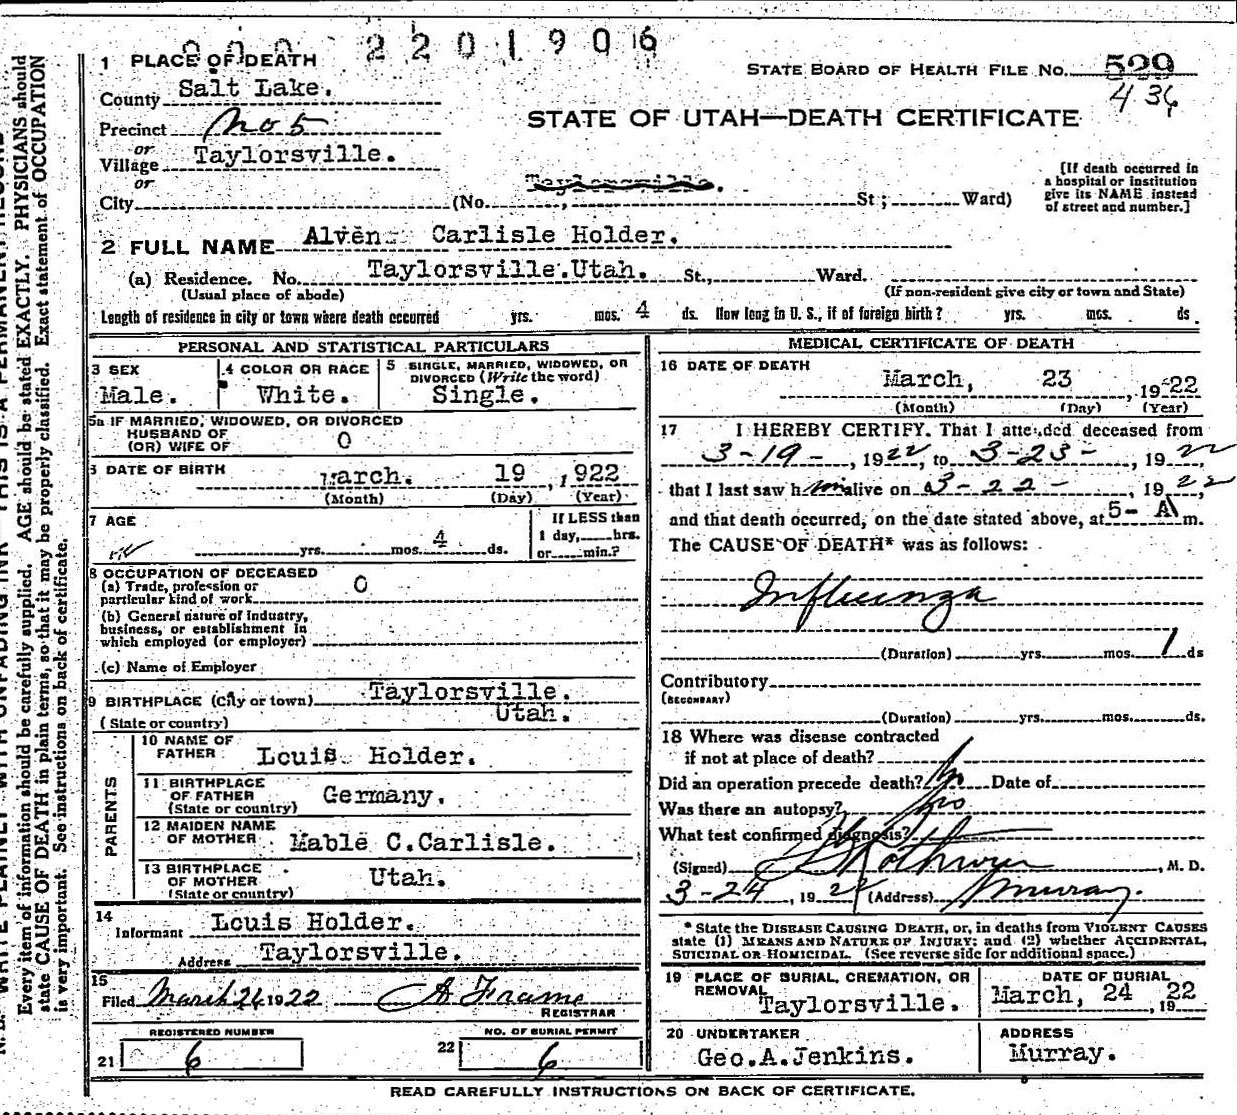 000 2201906
1 PLACE OF DEATH
STATE BOARD OF HEALTH FILE NO. 529
436
County Salt Lake.
Precinct No 5
STATE OF UTAH—DEATH CERTIFICATE
or
Village Taylorsville.
or
Taylorsville.
City (No. , St; Ward)
[If death occurred in
a hospital or institution
give its NAME instead
of street and number.]
2 FULL NAME Alven Carlisle Holder.
(a) Residence. No. Taylorsville.Utah. St., Ward.
(Usual place of abode) (If non-resident give city or town and State)
Length of residence in city or town where death occurred yrs. mos. 4 ds. How long in U. S., if of foreign birth? yrs. mos. ds.
PERSONAL AND STATISTICAL PARTICULARS
3 SEX
Male.
4 COLOR OR RACE
White.
5 SINGLE, MARRIED, WIDOWED, OR
DIVORCED (Write the word)
Single.
5a IF MARRIED, WIDOWED, OR DIVORCED
HUSBAND OF
(OR) WIFE OF 0
6 DATE OF BIRTH
March. 19 ,1922
(Month) (Day) (Year)
7 AGE
yrs. mos. 4 ds.
If LESS than
1 day, hrs.
or min.?
8 OCCUPATION OF DECEASED
(a) Trade, profession or
particular kind of work 0
(b) General nature of industry,
business, or establishment in
which employed (or employer)
(c) Name of Employer
9 BIRTHPLACE (City or town) Taylorsville.
(State or country) Utah.
PARENTS
10 NAME OF
FATHER Louis Holder.
11 BIRTHPLACE
OF FATHER
(State or country) Germany.
12 MAIDEN NAME
OF MOTHER Mable C.Carlisle.
13 BIRTHPLACE
OF MOTHER
(State or country) Utah.
14
Informant Louis Holder.
Address Taylorsville.
15
Filed March 24 1922 A Frame
REGISTRAR
REGISTERED NUMBER
21 6
NO. OF BURIAL PERMIT
22 6
MEDICAL CERTIFICATE OF DEATH
16 DATE OF DEATH
March, 23 , 19 22
(Month) (Day) (Year)
17 I HEREBY CERTIFY. That I attended deceased from
3-19- , 1922, to 3-23- , 1922
that I last saw him alive on 3-22- , 1922,
and that death occurred, on the date stated above, at 5-A m.
The CAUSE OF DEATH* was as follows:
Influenza
(Duration) yrs. mos. 1 ds
Contributory
(SECONDARY)
(Duration) yrs. mos. ds.
18 Where was disease contracted
if not at place of death?
Did an operation precede death? No Date of
Was there an autopsy? No
What test confirmed diagnosis?
(Signed) Rothwell , M. D.
3-24 , 1922 (Address) Murray.
* State the DISEASE CAUSING DEATH, or, in deaths from VIOLENT CAUSES
state (1) MEANS AND NATURE OF INJURY; and (2) whether ACCIDENTAL,
SUICIDAL OR HOMICIDAL. (See reverse side for additional space.)
19 PLACE OF BURIAL, CREMATION, OR
REMOVAL
Taylorsville.
DATE OF BURIAL
March, 24 , 19 22
20 UNDERTAKER
Geo.A.Jenkins.
ADDRESS
Murray.
READ CAREFULLY INSTRUCTIONS ON BACK OF CERTIFICATE.
Every item of information should be carefully supplied. AGE should be stated EXACTLY. PHYSICIANS should
state CAUSE OF DEATH in plain terms, so that it may be properly classified. Exact statement of OCCUPATION
is very important. See instructions on back of certificate.